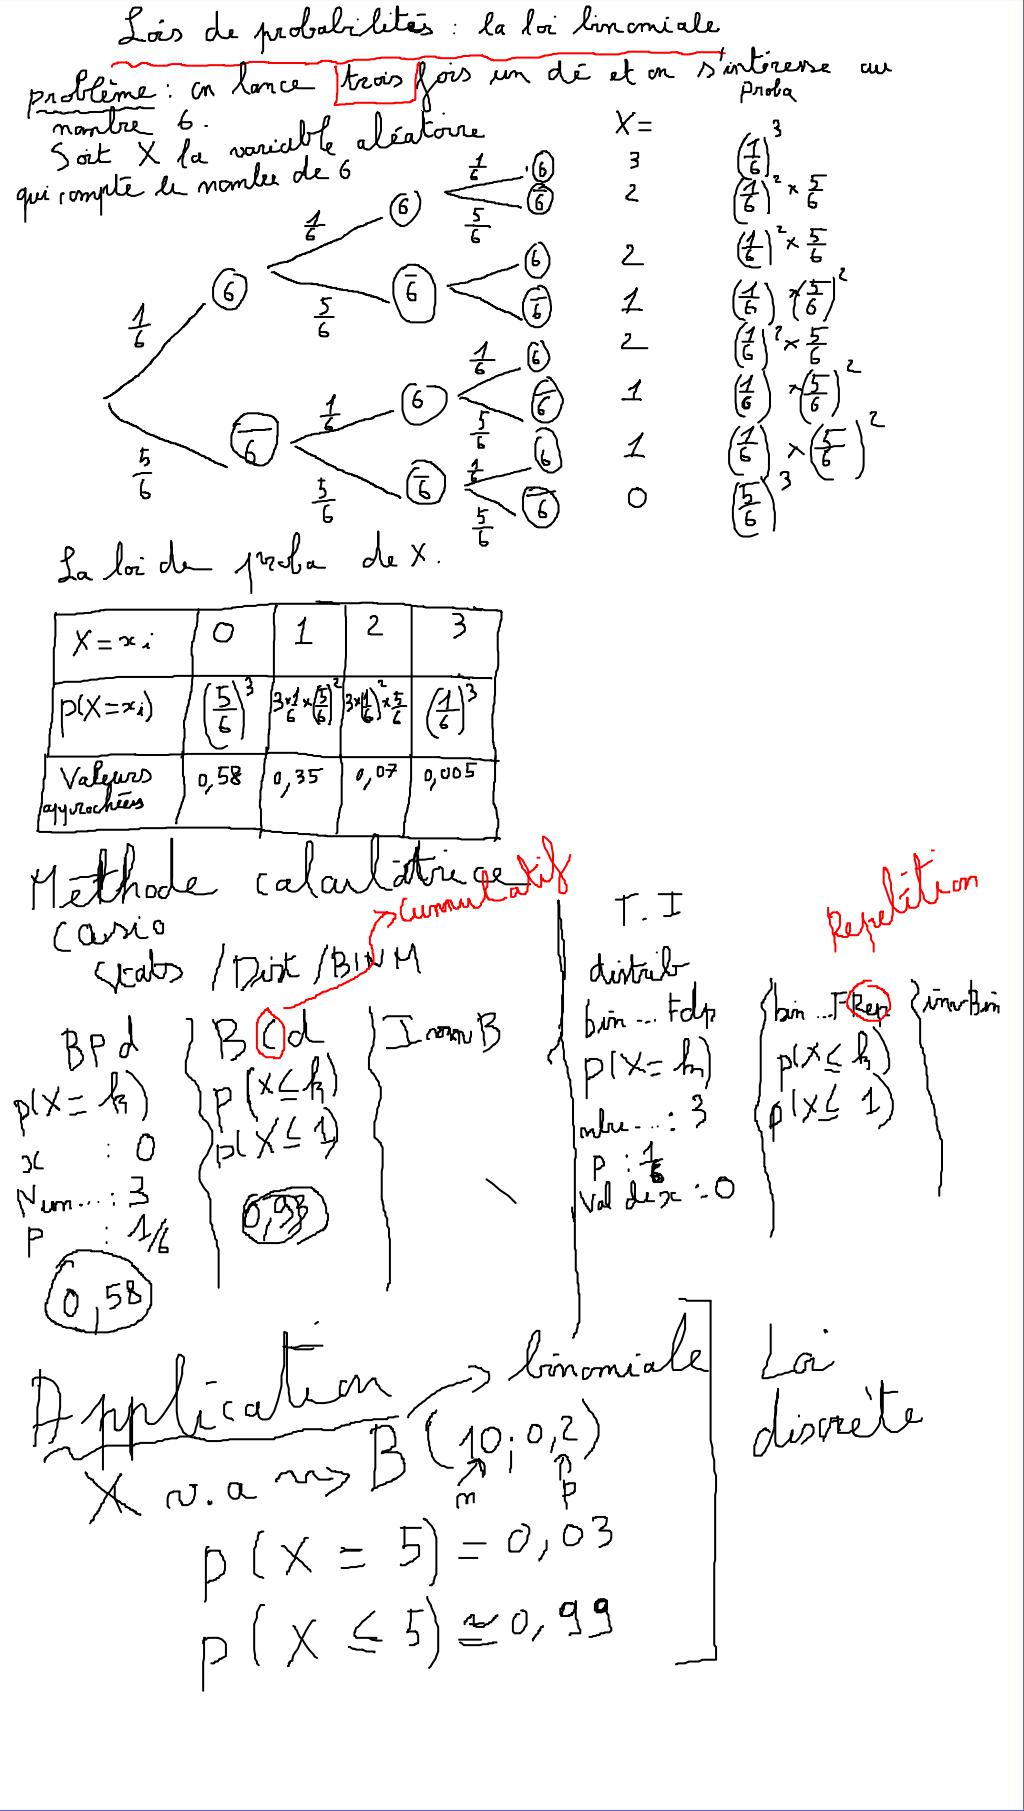 Lois de probabilités : la loi binomiale
problème : on lance trois fois un dé et on s'intéresse au
nombre 6.
Soit X la variable aléatoire
qui compte le nombre de 6
X=
Proba
1/6 6 3 (1/6)^3
1/6 6 5/6 6̅ 2 (1/6)^2 × 5/6
6 2 (1/6)^2 × 5/6
1/6 6 5/6 6̅ 6̅ 1 (1/6) × (5/6)^2
1/6 6 2 (1/6)^2 × 5/6
1/6 6 5/6 6̅ 1 (1/6) × (5/6)^2
5/6 6̅ 1/6 6 1 (1/6) × (5/6)^2
5/6 6̅ 5/6 6̅ 0 (5/6)^3
La loi de proba de X.
X = xi 0 1 2 3
p(X=xi) (5/6)^3 3×1/6×(5/6)^2 3×(1/6)^2×5/6 (1/6)^3
Valeurs approchées 0,58 0,35 0,07 0,005
Méthode calculatrice
Cummulatif
Casio
Stats / Dist / BINM
BPd
p(X = k)
x : 0
Num... : 3
P : 1/6
0,58
BCd
p(X ≤ k)
p(X ≤ 1)
0,93
InvB
T.I
Repetition
distrib
bin ... Fdp
p(X = k)
nbre ... : 3
P : 1/6
Val de x : 0
bin ... FRep
p(X ≤ k)
p(X ≤ 1)
invBin
Application
binomiale
X v.a ~> B (10 ; 0,2)
n p
p(X = 5) = 0,03
p(X ≤ 5) ≃ 0,99
Loi
discrète